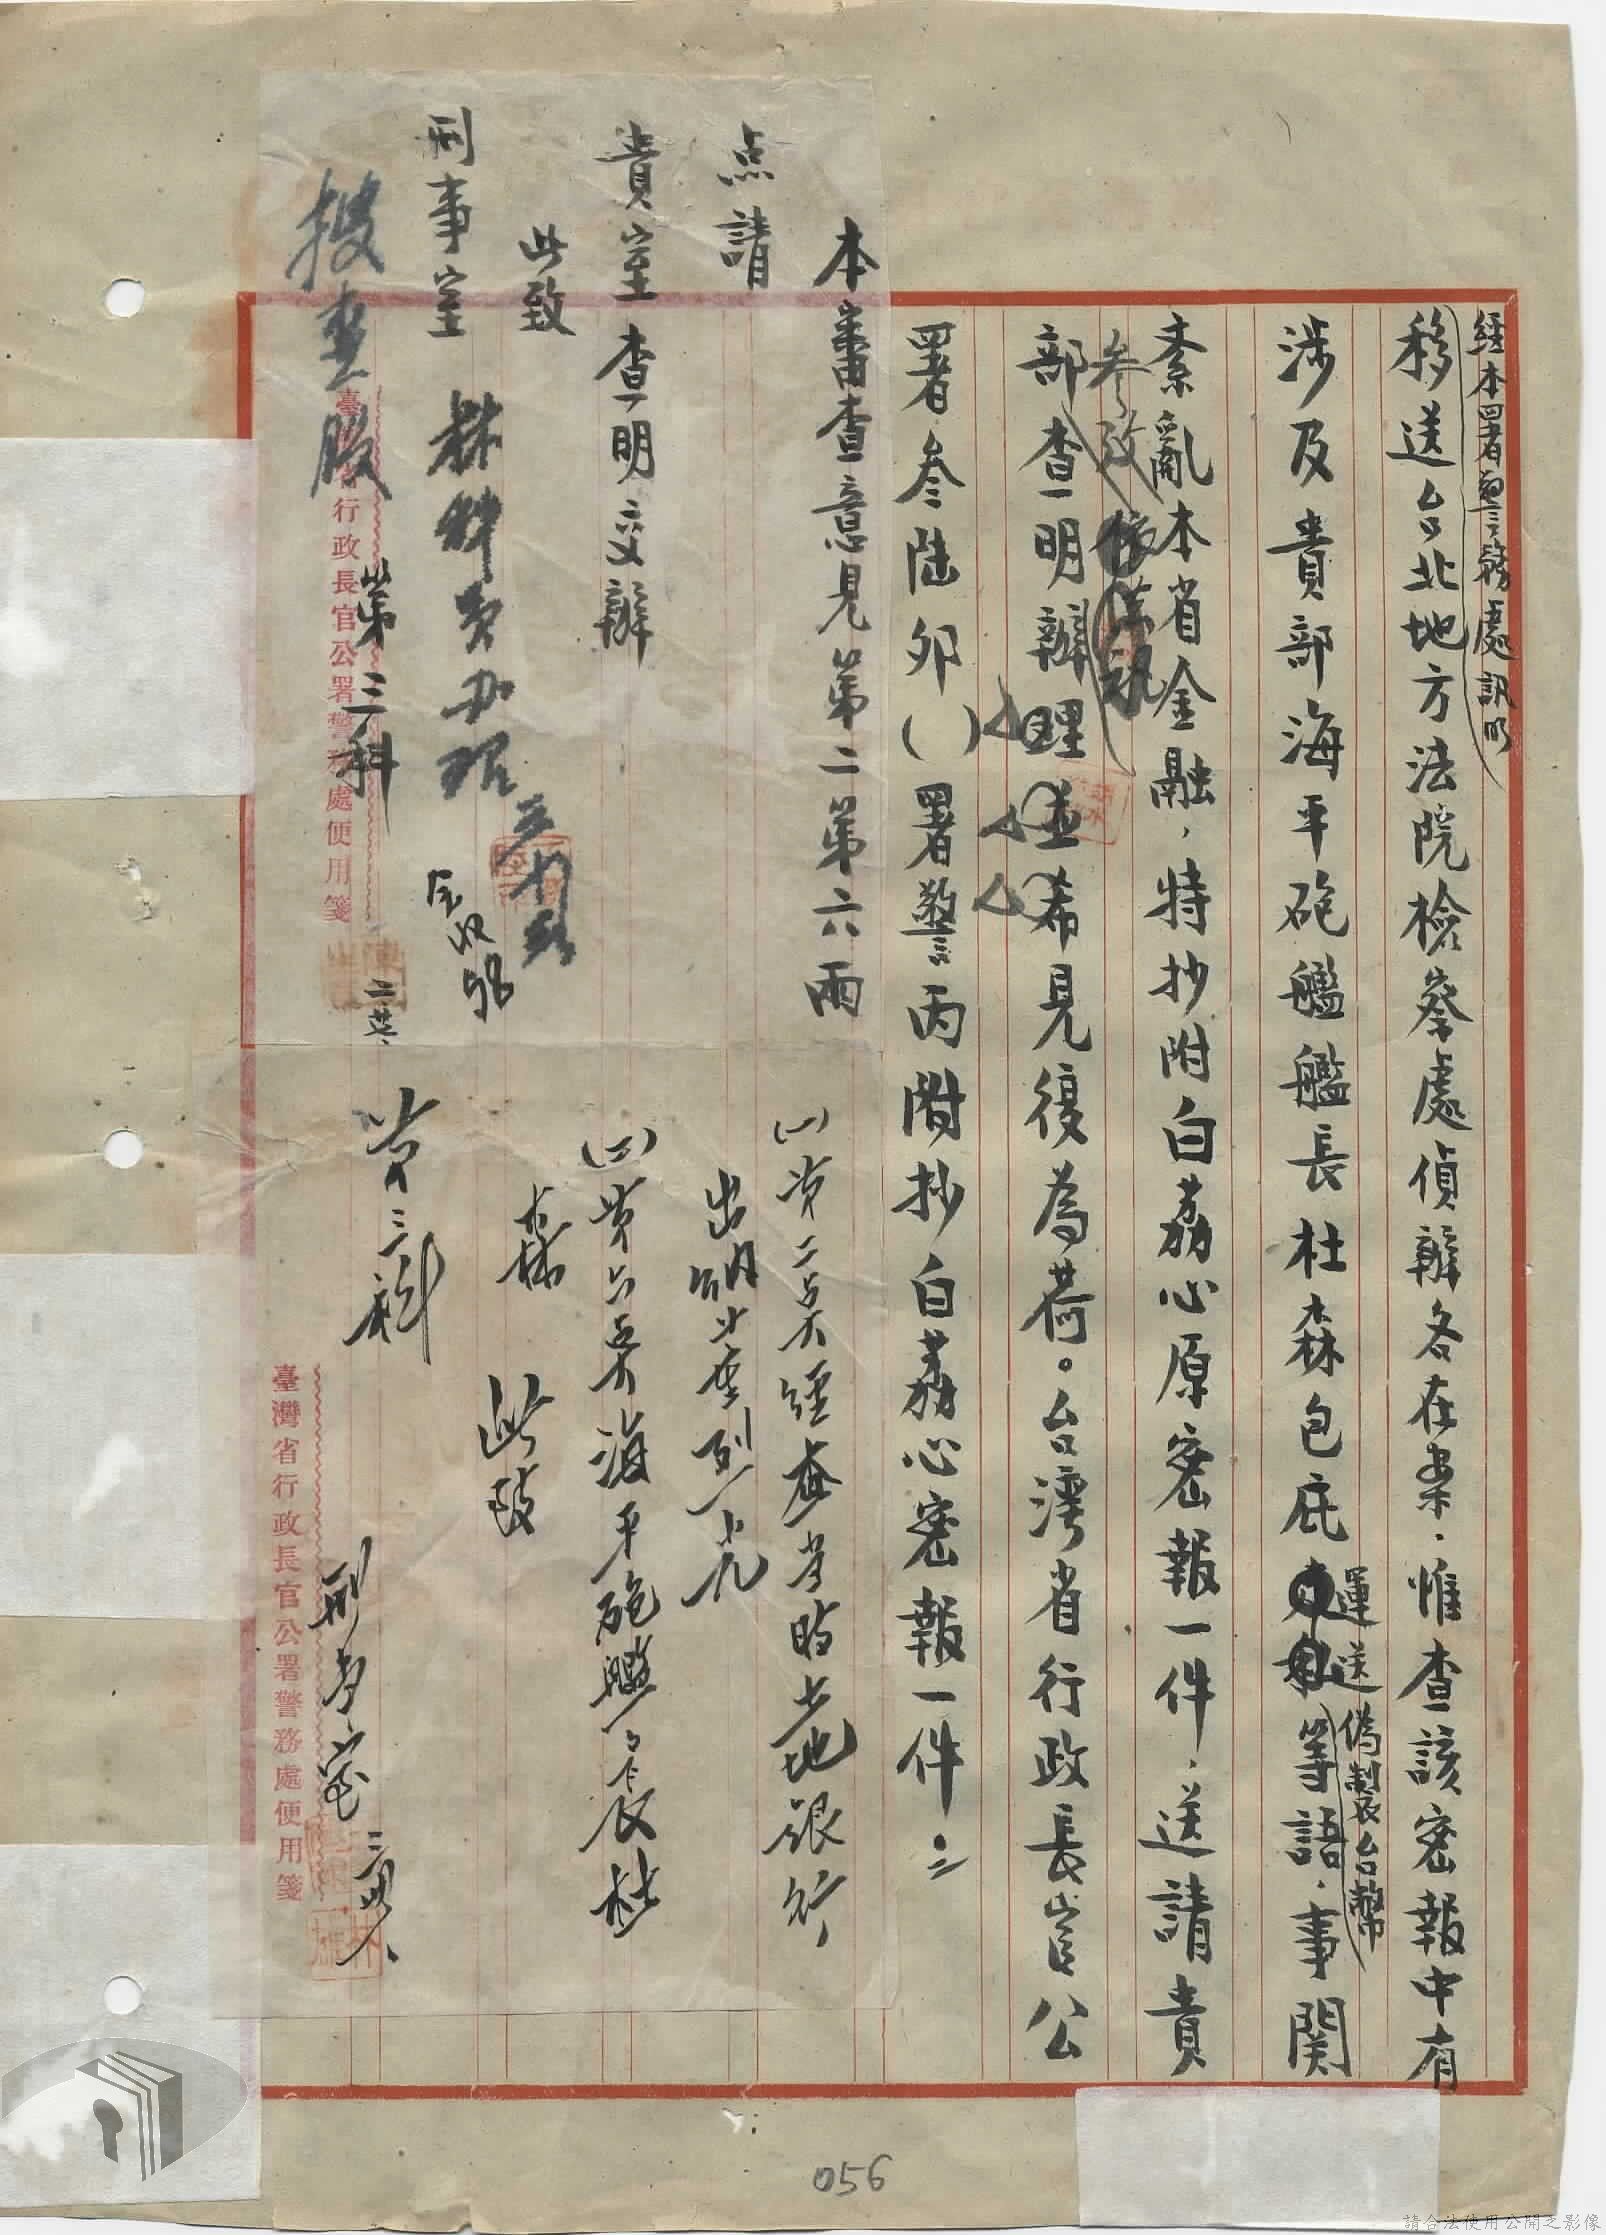 經本署警務處訊明
移送台北地方法院檢察處偵辦各在案．惟查該密報中有
涉及貴部海平砲艦艦長杜森包庇
運送偽製台幣
等語．事関
紊亂本省金融，特抄附白荔心原密報一件．送請貴
參改
依法訊
部查明辦理並希見復為荷。台湾省行政長官公
署叁陆卯（ ）署警丙附抄白荔心密報一件．
本審查意見第二第六兩
点請
貴室查明交辦
此致
刑事室
第三科
林科員加理
搜查股
臺灣省行政長官公署警務處便用箋
(一)第二点經查當時土地銀行
出納
(二)第六点海平砲艦長杜
森
此致
第三科
刑事室
臺灣省行政長官公署警務處便用箋
056
請合法使用公開之影像